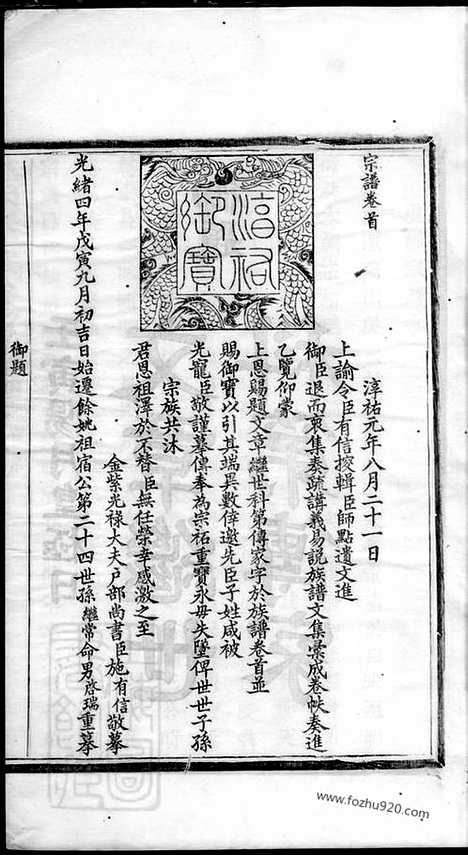 宗譜卷首
淳祐御寶
淳祐元年八月二十一日
上諭令臣有信搜輯臣師點遺文進
御臣退而裒集奏疏講義易說族譜文集彙成卷帙奏進
乙覽仰蒙
上恩賜題文章繼世科第傳家字於族譜卷首並
賜御寶以引其端異數倖邀先臣子姓咸被
光寵臣敬謹摹傳奉為宗祐重寶永毋失墜俾世世子孫
宗族共沐
君恩祖澤於不替臣無任榮幸感激之至
金紫光祿大夫戶部尚書臣施有信敬摹
光緒四年戊寅九月初吉日始遷餘姚祖宿公第二十四世孫繼常命男啓瑞重摹
御題
www.fozhu920.com